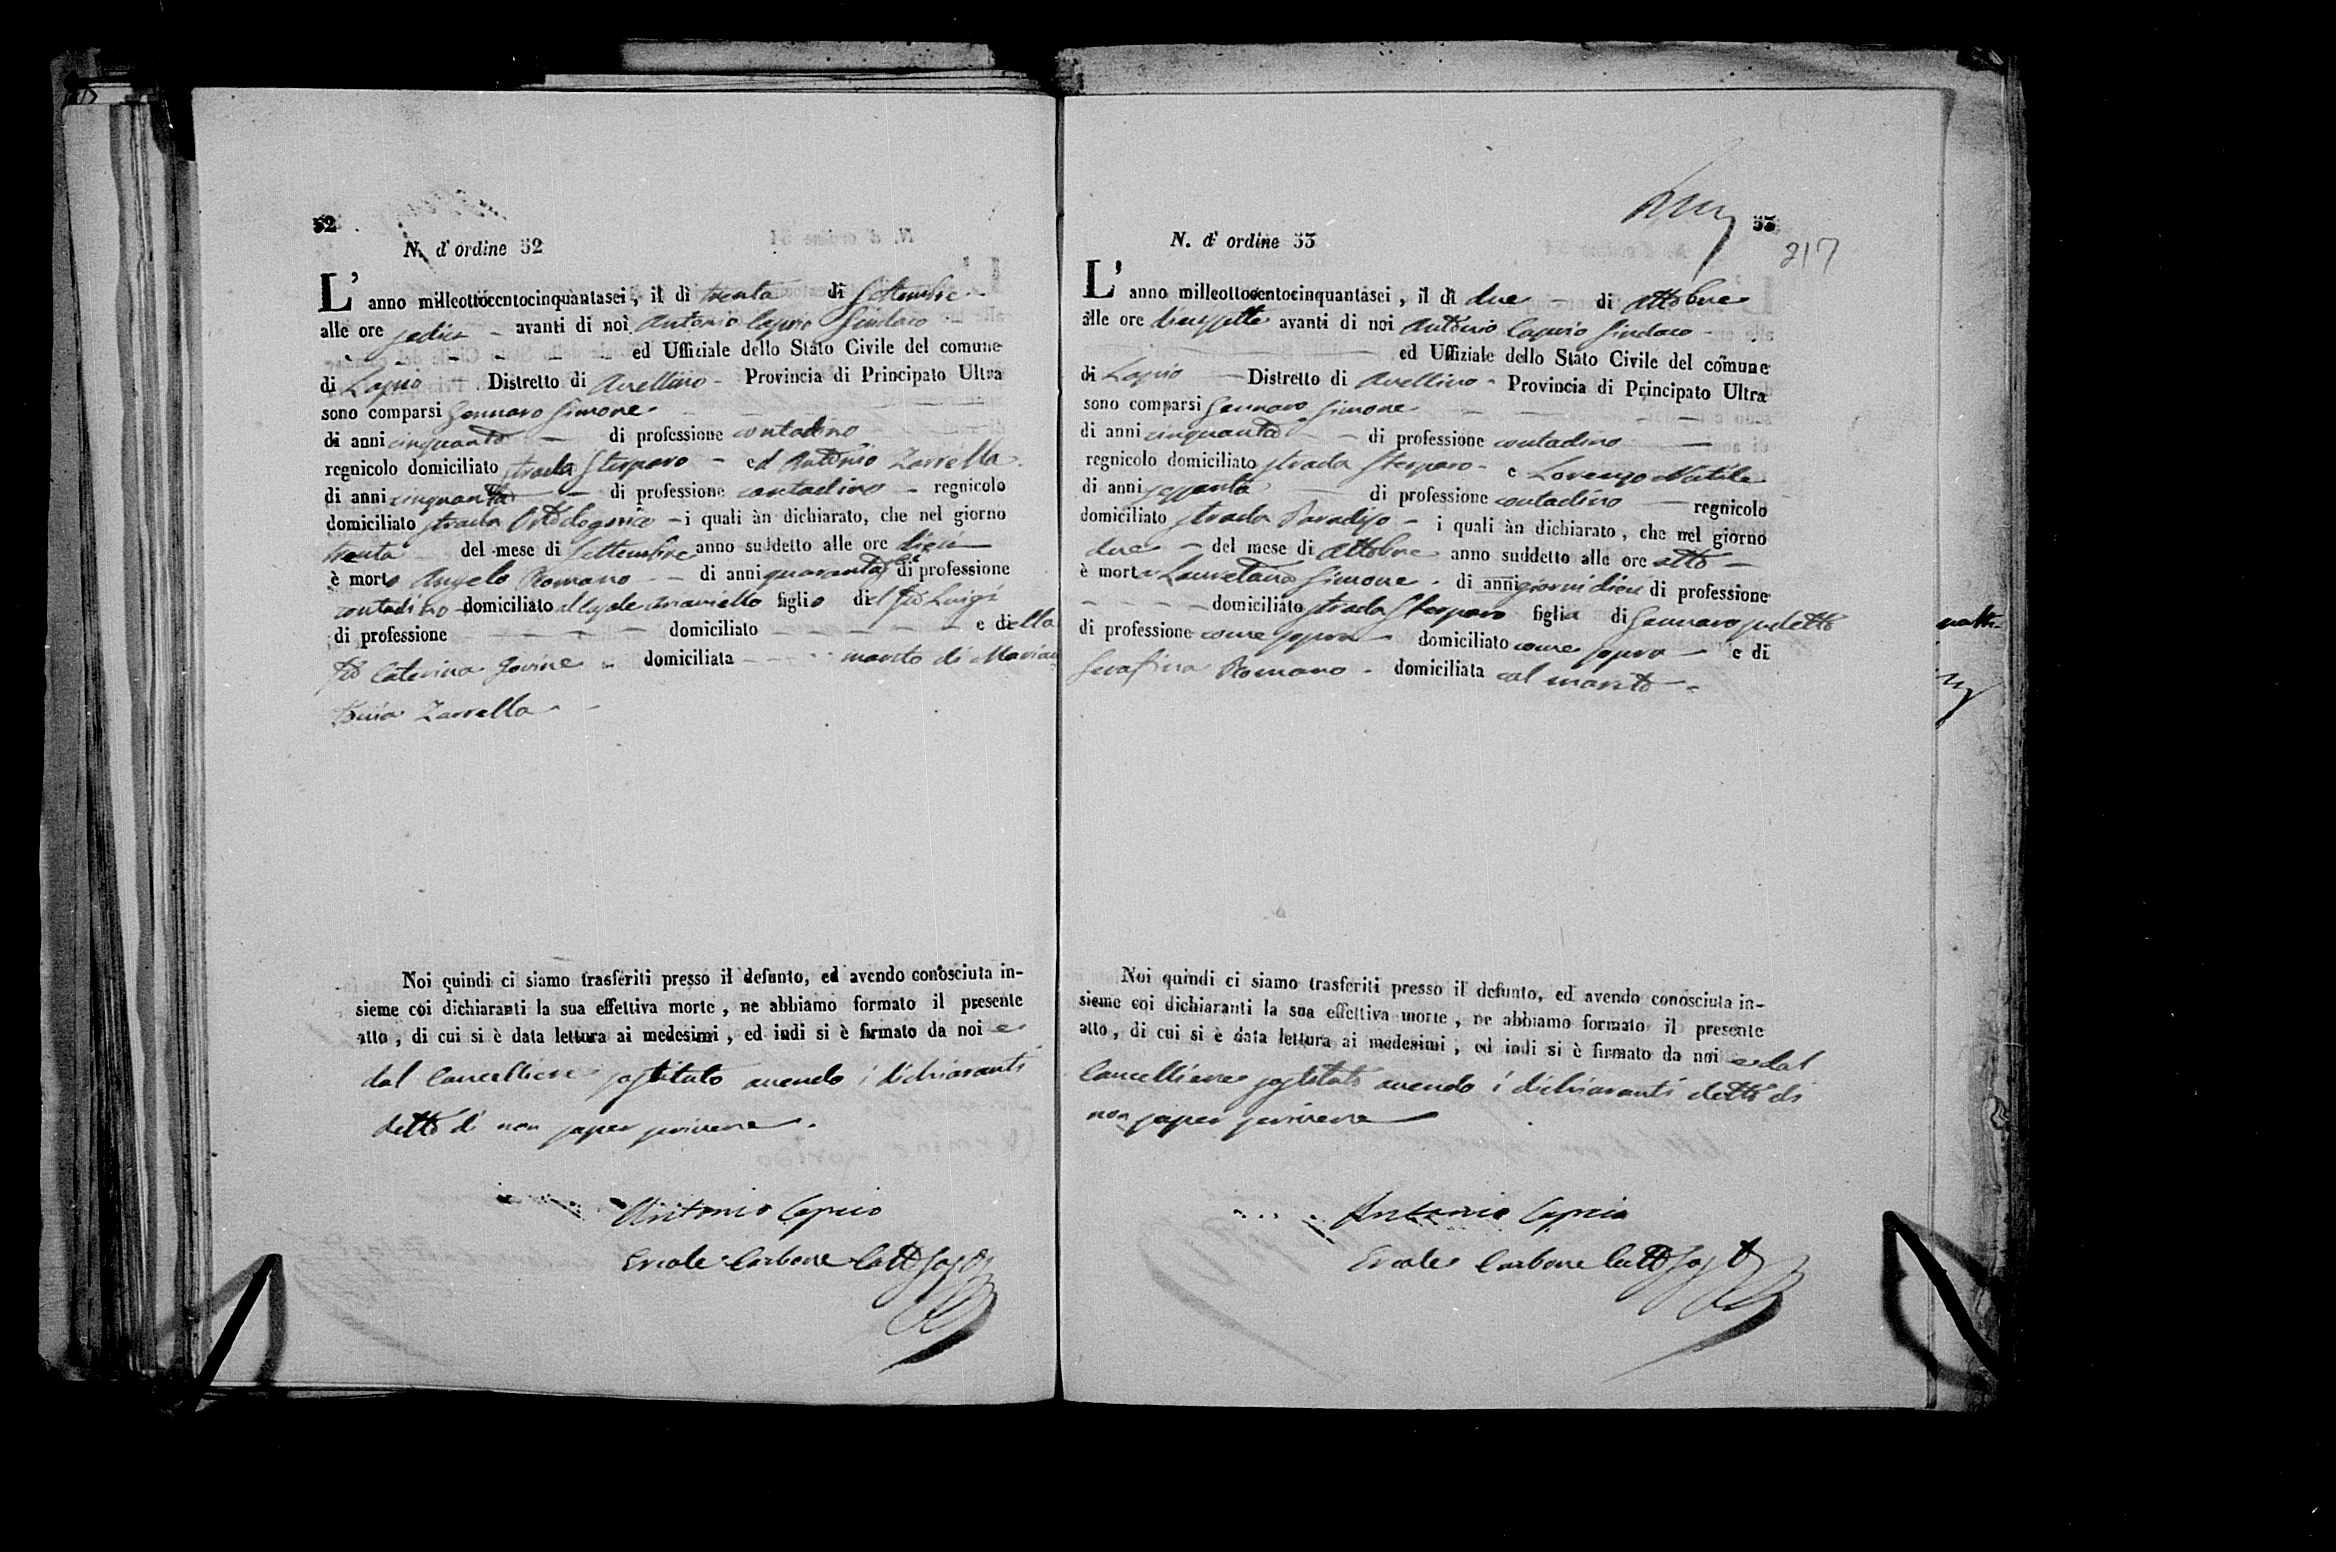 52
N. d' ordine 52
L' anno milleottocentocinquantasei, il di trenta di Settembre
alle ore sedici avanti di noi Antonio Caprio Sindaco
ed Uffiziale dello Stato Civile del comune
di Lapio Distretto di Avellino Provincia di Principato Ultra
sono comparsi Gennaro Simone
di anni cinquanta di professione contadino
regnicolo domiciliato strada Sterparo ed Antonio Zarrella
di anni cinquanta di professione contadino regnicolo
domiciliato strada i quali àn dichiarato, che nel giorno
trenta del mese di Settembre anno suddetto alle ore dieci
è morto Angelo Romano di anni quaranta di professione
contadino domiciliato figlio del fù Luigi
di professione domiciliato e della
fù Caterina Iovine domiciliata marito di Marian
Zarrella
Noi quindi ci siamo trasferiti presso il defunto, ed avendo conosciuta in-
sieme coi dichiaranti la sua effettiva morte, ne abbiamo formato il presente
atto, di cui si è data lettura ai medesimi, ed indi si è firmato da noi e
dal Cancelliere sostituto avendo i dichiaranti
detto di non saper scrivere.
Antonio Caprio
Ercole Carbone
53
217
N. d' ordine 53
L' anno milleottocentocinquantasei, il di due di Ottobre
alle ore diecissette avanti di noi Antonio Caprio Sindaco
ed Uffiziale dello Stato Civile del comune
di Lapio Distretto di Avellino Provincia di Principato Ultra
sono comparsi Gennaro Simone
di anni cinquanta di professione contadino
regnicolo domiciliato strada Sterparo e Lorenzo
di anni sessanta di professione contadino regnicolo
domiciliato strada Paradiso i quali àn dichiarato, che nel giorno
due del mese di Ottobre anno suddetto alle ore otto
è morta Lauretana Simone di anni giorni dieci di professione
domiciliato strada Sterparo figlia di Gennaro sudetto
di professione come sopra domiciliato come sopra e di
Serafina Romano domiciliata col marito
Noi quindi ci siamo trasferiti presso il defunto, ed avendo conosciuta in-
sieme coi dichiaranti la sua effettiva morte, ne abbiamo formato il presente
atto, di cui si è data lettura ai medesimi, ed indi si è firmato da noi e dal
Cancelliere sostituto avendo i dichiaranti detto di
non saper scrivere
Antonio Caprio
Ercole Carbone